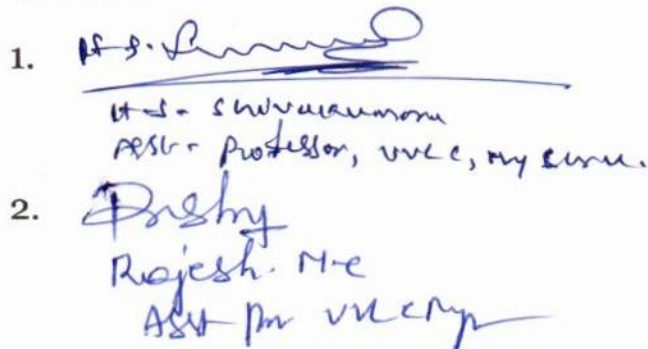 1. H.S.
H.S. Shivakumara
Asst. Professor, VVLC, Mysuru.
2.
Rajesh. M.C
Asst Pro VVLC Mys